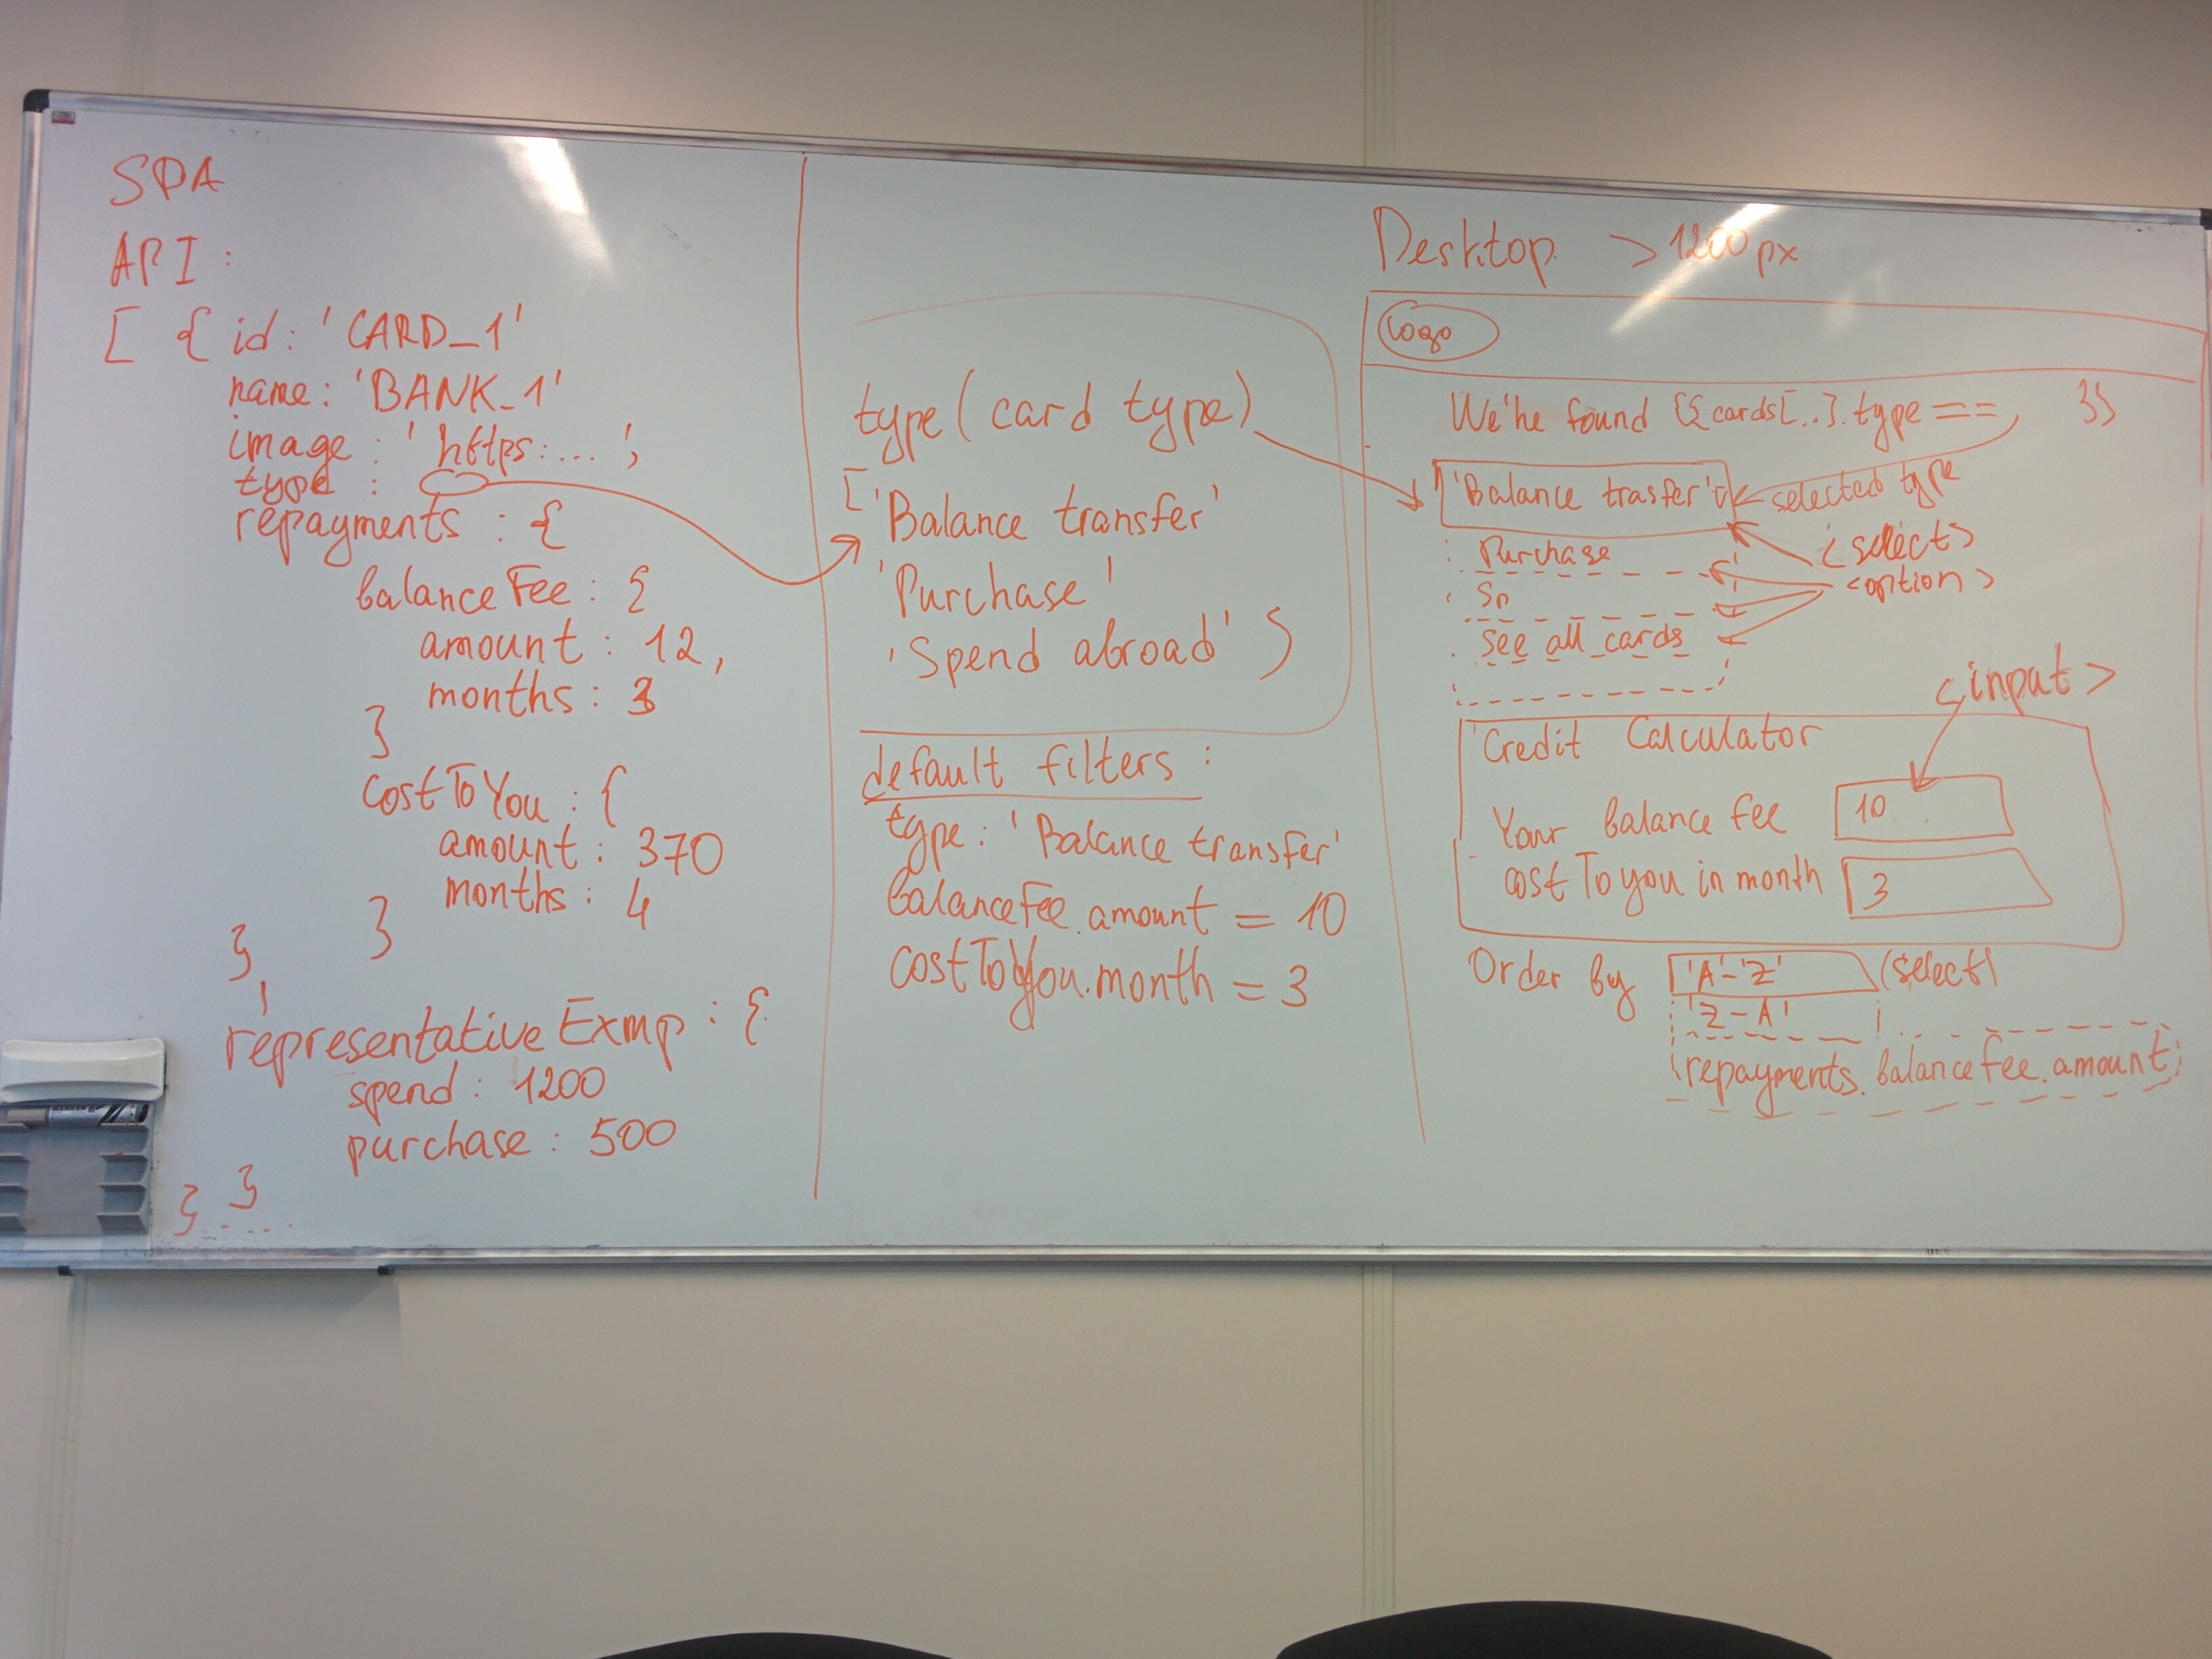 SPA
API :
[ { id: 'CARD_1'
name: 'BANK_1'
image : 'https:... ',
type :
repayments : {
balanceFee : {
amount : 12,
months : 3
}
costToYou : {
amount : 370
months : 4
}
}
,
representativeExmp : {
spend : 1200
purchase : 500
}
} .....
type (card type)
[ 'Balance transfer'
'Purchase'
'Spend abroad' ]
default filters :
type : 'Balance transfer'
balanceFee.amount = 10
costToYou.month = 3
Desktop > 1200px
Logo
We'he found {{ cards[..].type == }}
'Balance trasfer' selected type
Purchase <select>
Sp <option>
see all cards
<input>
Credit Calculator
Your balance fee 10
costToyou in month 3
Order by 'A'-'Z' (select)
'Z-A'
repayments.balanceFee.amount